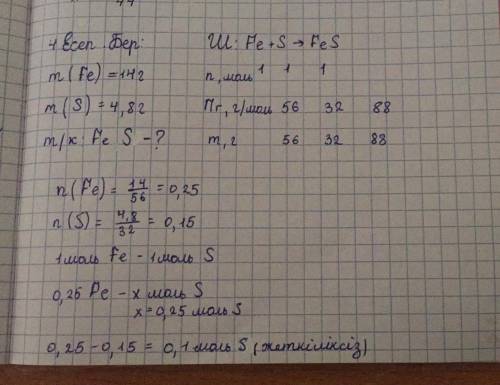 1 Есеп. Бер:
Ш: Fe + S → FeS
m (Fe) = 14г
n, моль 1 1 1
m (S) = 4,8г
Мг, г/моль 56 32 88
т/к: Fe S - ?
m, г 56 32 88
n (Fe) = 14/56 = 0,25
n (S) = 4,8/32 = 0,15
1 моль Fe - 1 моль S
0,25 Fe - x моль S
x = 0,25 моль S
0,25 - 0,15 = 0,1 моль S (жеткіліксіз)